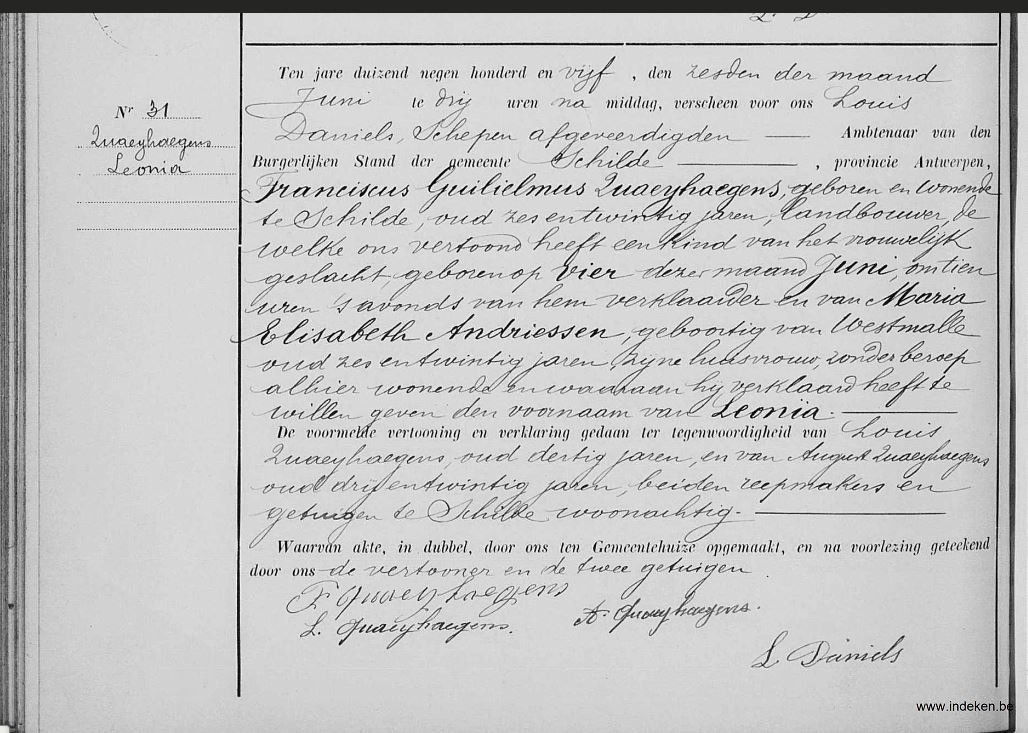 Nr 31
Quaeyhaegens
Leonia
Ten jare duizend negen honderd en vijf, den zesden der maand
Juni te drij uren na middag, verscheen voor ons Louis
Daniels, Schepen afgeveerdigden — Ambtenaar van den
Burgerlijken Stand der gemeente Schilde —, provincie Antwerpen,
Franciscus Guilielmus Quaeyhaegens, geboren en wonende
te Schilde, oud zes entwintig jaren, landbouwer, de
welke ons vertoond heeft een kind van het vrouwelijk
geslacht, geboren op vier dezer maand Juni, om tien
uren 's avonds van hem verklaarder en van Maria
Elisabeth Andriessen, geboortig van Westmalle
oud zes entwintig jaren, zyne huisvrouw, zonder beroep
alhier wonende en waaraan hy verklaard heeft te
willen geven den voornaam van Leonia. —
De voormelde vertooning en verklaring gedaan ter tegenwoordigheid van Louis
Quaeyhaegens, oud dertig jaren, en van August Quaeyhaegens
oud drij entwintig jaren, beiden zeepmakers en
getuigen te Schilde woonachtig. —
Waarvan akte, in dubbel, door ons ten Gemeentehuize opgemaakt, en na voorlezing geteekend
door ons de vertooner en de twee getuigen.
F Quaeyhaegens
L. Quaeyhaegens.
A. Quaeyhaegens.
L Daniels
www.indeken.be